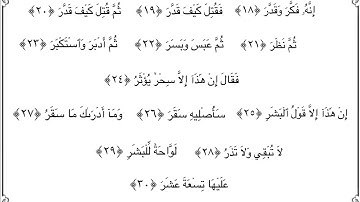 إِنَّهُۥ فَكَّرَ وَقَدَّرَ ﴿١٨﴾ فَقُتِلَ كَيْفَ قَدَّرَ ﴿١٩﴾ ثُمَّ قُتِلَ كَيْفَ قَدَّرَ ﴿٢٠﴾
ثُمَّ نَظَرَ ﴿٢١﴾ ثُمَّ عَبَسَ وَبَسَرَ ﴿٢٢﴾ ثُمَّ أَدْبَرَ وَٱسْتَكْبَرَ ﴿٢٣﴾
فَقَالَ إِنْ هَٰذَآ إِلَّا سِحْرٌ يُؤْثَرُ ﴿٢٤﴾
إِنْ هَٰذَآ إِلَّا قَوْلُ ٱلْبَشَرِ ﴿٢٥﴾ سَأُصْلِيهِ سَقَرَ ﴿٢٦﴾ وَمَآ أَدْرَىٰكَ مَا سَقَرُ ﴿٢٧﴾
لَا تُبْقِى وَلَا تَذَرُ ﴿٢٨﴾ لَوَّاحَةٌ لِّلْبَشَرِ ﴿٢٩﴾
عَلَيْهَا تِسْعَةَ عَشَرَ ﴿٣٠﴾